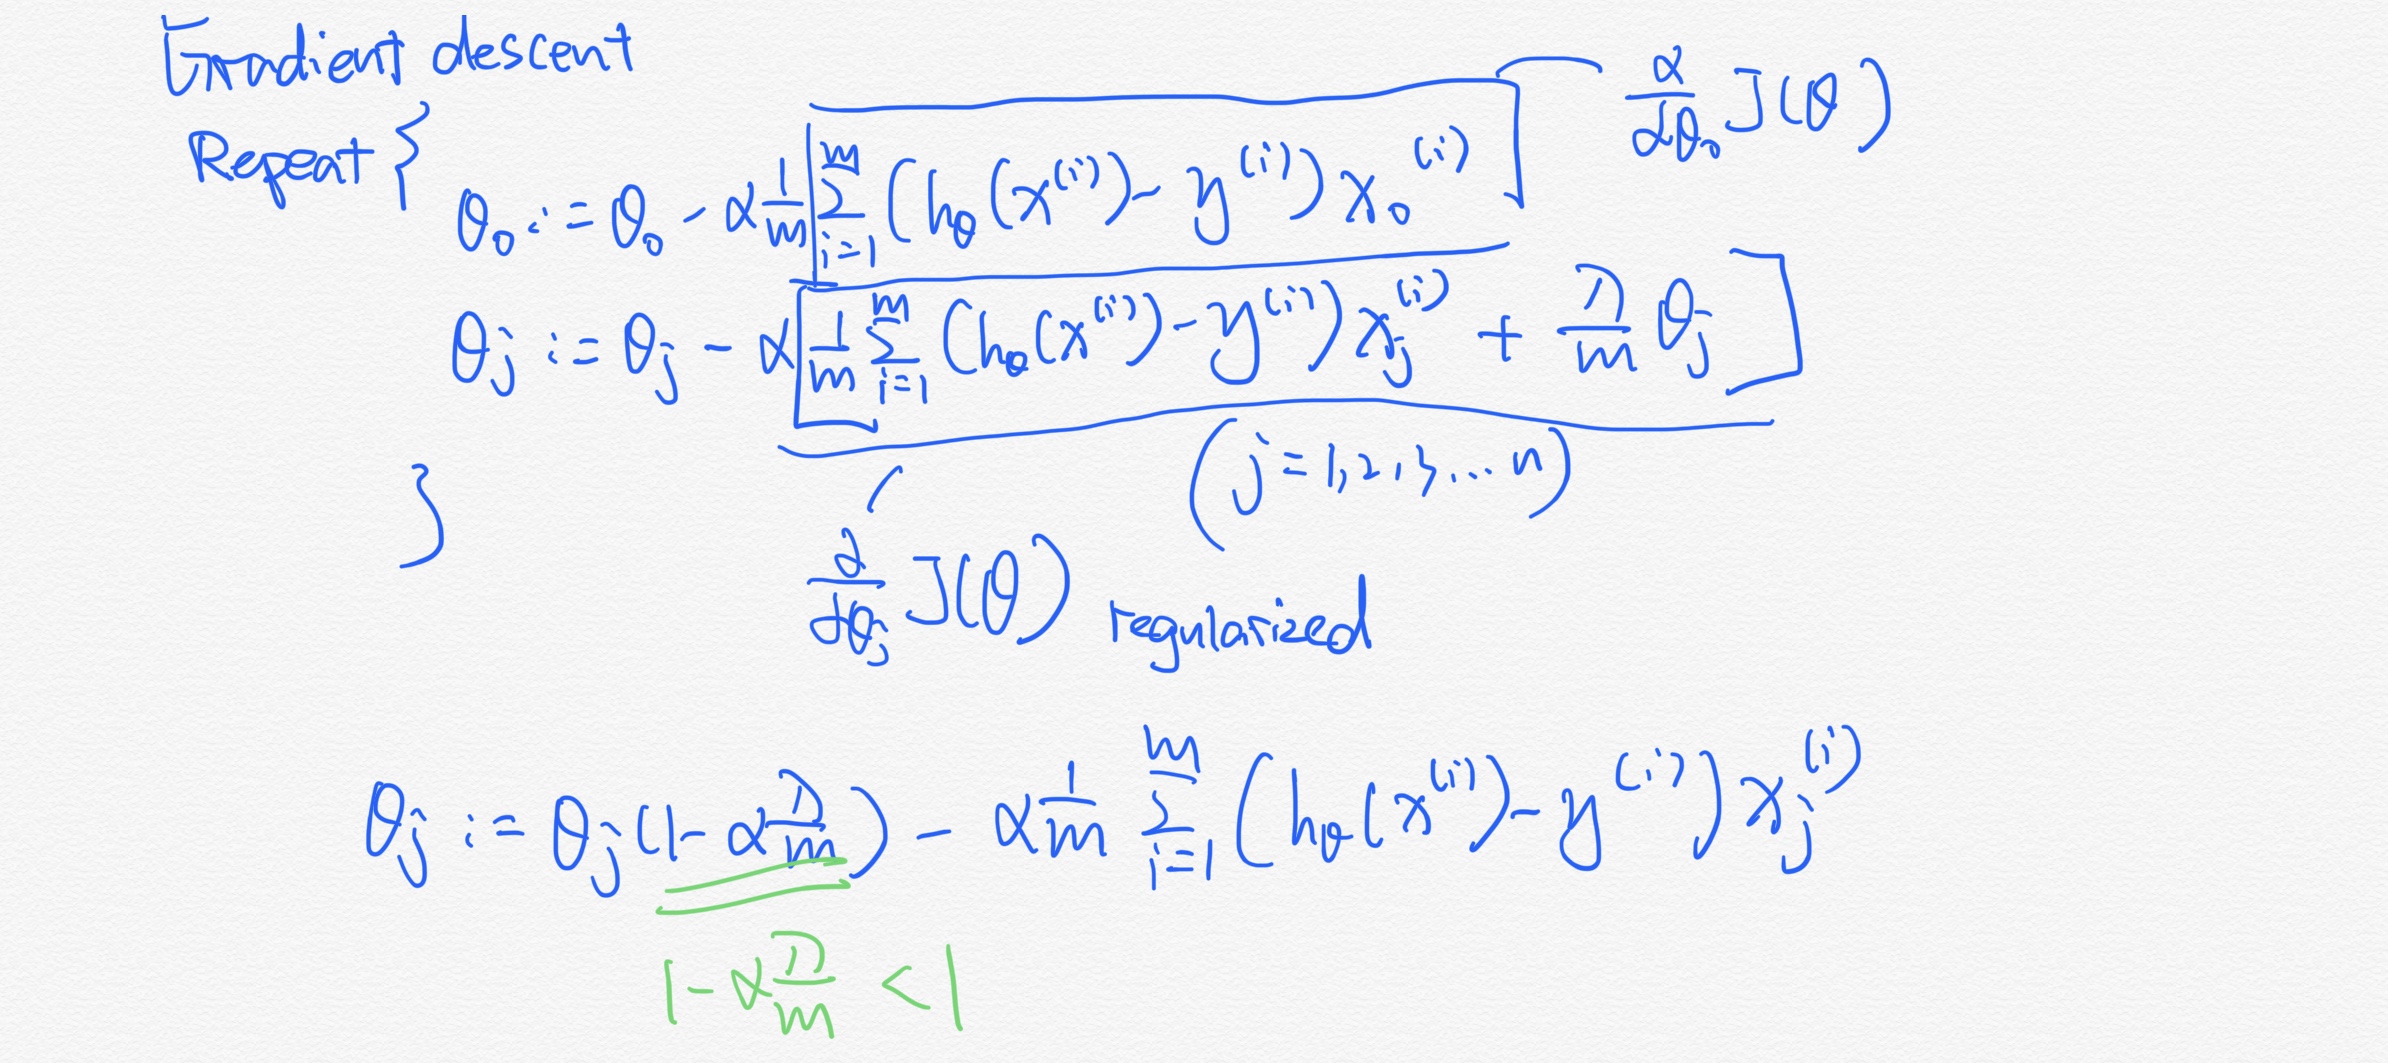 Gradient descent
Repeat {
θ₀ := θ₀ - α 1/m [ Σ_{i=1}^{m} (h_θ(x^{(i)}) - y^{(i)}) x₀^{(i)} ] α/αθ₀ J(θ)
θ_j := θ_j - α [ 1/m Σ_{i=1}^{m} (h_θ(x^{(i)}) - y^{(i)}) x_j^{(i)} + λ/m θ_j ]
(j = 1, 2, 3, ... n)
}
∂/∂θ_j J(θ) regularized
θ_j := θ_j (1 - α λ/m) - α 1/m Σ_{i=1}^{m} (h_θ(x^{(i)}) - y^{(i)}) x_j^{(i)}
1 - α λ/m < 1